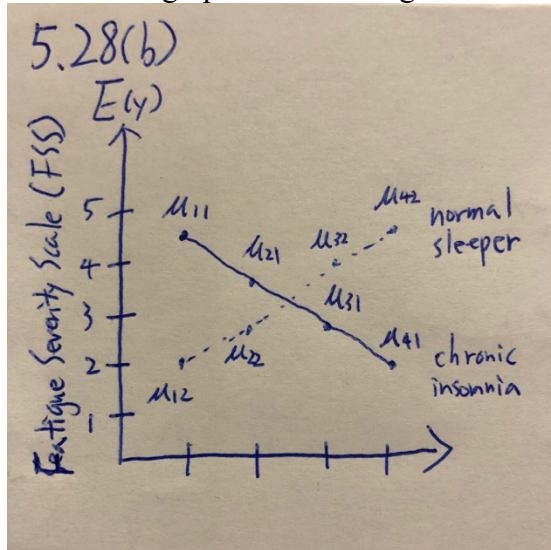 5.28(b)
E(y)
Featigue Severity Scale (FSS)
5
4
3
2
1
μ11
μ21
μ32
μ42
μ12
μ22
μ31
μ41
normal
sleeper
chronic
insomnia